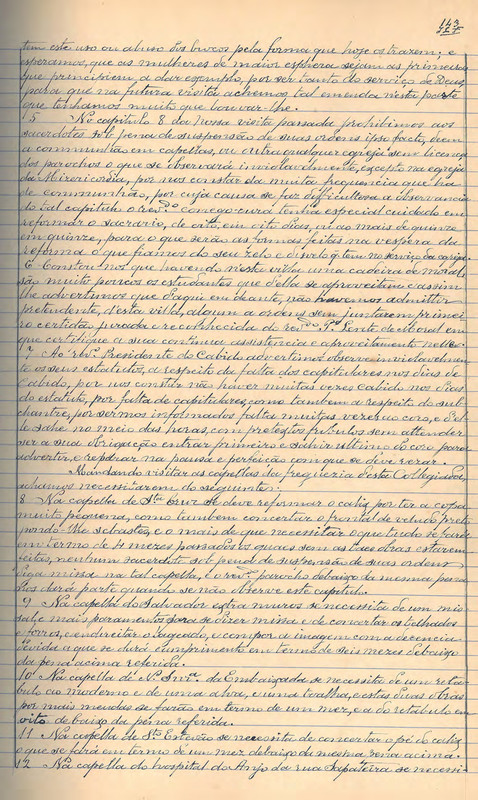 143
tem este uso ou abuso dos bucos pela forma que hoje os trazem; e
esperamos, que as mulheres de maior esphera sejam as primeiras
que principiem, a dar exemplo, por ser tanto do serviço de Deus,
para que na futura visita achemos tal emenda n'esta parte
que tenhamos muito que louvar-lhe.
5 No capitulo 8 da nossa visita passada prohibimos aos
sacerdotes sob pena de suspensão de suas ordens ipso facto, dêem
a communhão em capellas, ou outra qualquer egreja sem licença
dos parochos o que se observará inviolavelmente, excepto na egreja
da Misericordia, por nos constar da muita frequencia que ha
de communhão, por cuja causa se faz difficultosa a observancia
do tal capitulo o rev.do conego cura tenha especial cuidado em
reformar o sacrario, de oito, em oito dias, ou ao mais de quinze
em quinze, para o que serão as formas feitas na vespera da
reforma o que fiamos do seu zelo e disvelo q tem no serviço da egreja.
6 Constou-nos que havendo n'esta villa uma cadeira de moral
são muito poucos os estudantes que d'ella se aproveitam e assim
lhe advertimos que d'aqui em deante, não havemos admittir
pretendente, d'esta villa, algum a ordens sem juntarem primei
ro certidão jurada e reconhecida do rev.do P.e Lente de Moral em
que certifique a sua continua assistencia e aproveitamento nelle.
7 Ao rev.do Presidente do Cabido advertimos observe inviolavelmen
te os seus estatutos, a respeito da falta dos capitulares nos dias de
Cabido, por nos constar não haver muitas vezes cabido nos dias
do estatuto, por falta de capitulares, como tambem a respeito do sub-
chantre, por sermos informados falta muitas vezes ao coro, e d'el-
le sahe no meio das horas, com pretextos frivolos sem attender
ser a sua obrigação entrar primeiro e sahir ultimo do coro para
advertir, e reparar na pausa e perfeição com que se deve rezar.
Mandando visitar as capellas da freguezia d'esta Collegiada,
achamos necessitarem do seguinte:
8 Na capella de S.ta Cruz se deve reformar o calix por ter a copa
muito pequena, como tambem concertar o frontal de veludo preto
pondo-lhe sebastes, e o mais de que necessitar o que tudo se fará
em termo de 4 mezes passados os quaes sem as taes obras estarem
feitas, nenhum sacerdote sob pena de suspensão de suas ordens
diga missa na tal capella, e o rev.do parocho debaixo da mesma pena
nos dará parte quando se não observe este capitulo.
9 Na capella do Salvador extra muros se necessita de um mis-
sal, e mais paramentos para se dizer missa e de concertar os telhados
e forros, e endireitar o lageado, e compor a imagem com a decencia
devida a que se dará cumprimento em termo de seis mezes debaixo
da pena acima referida.
10 Na capella de N.a Snr.a da Embaixada se necessita de um reta-
bulo ao moderno e de uma alva, e uma toalha, e estas duas obras
por mais meudas se farão em termo de um mez, e a do retabulo em
oito debaixo da pena referida.
11 Na capella de S.to Estevão se necessita de concertar o pé do calix
o que se fará em termo de um mez debaixo da mesma pena acima.
12 Na capella do hospital do Anjo da rua Sapateira se necessi-